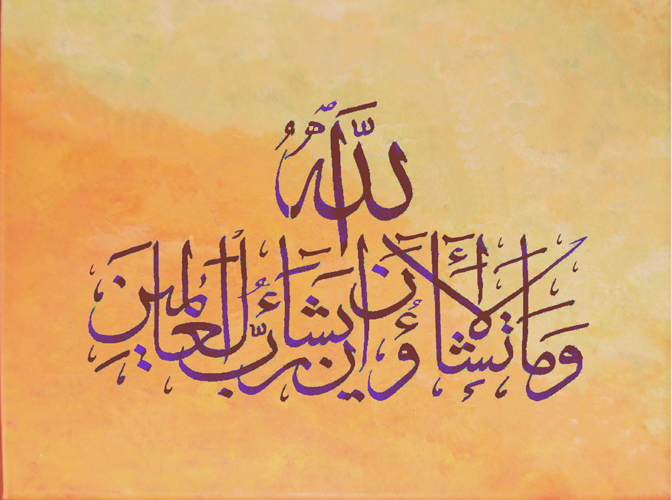 وَمَا تَشَاؤُنَ إِلَّا أَنْ يَشَاءَ اللَّهُ رَبُّ الْعَالَمِينَ